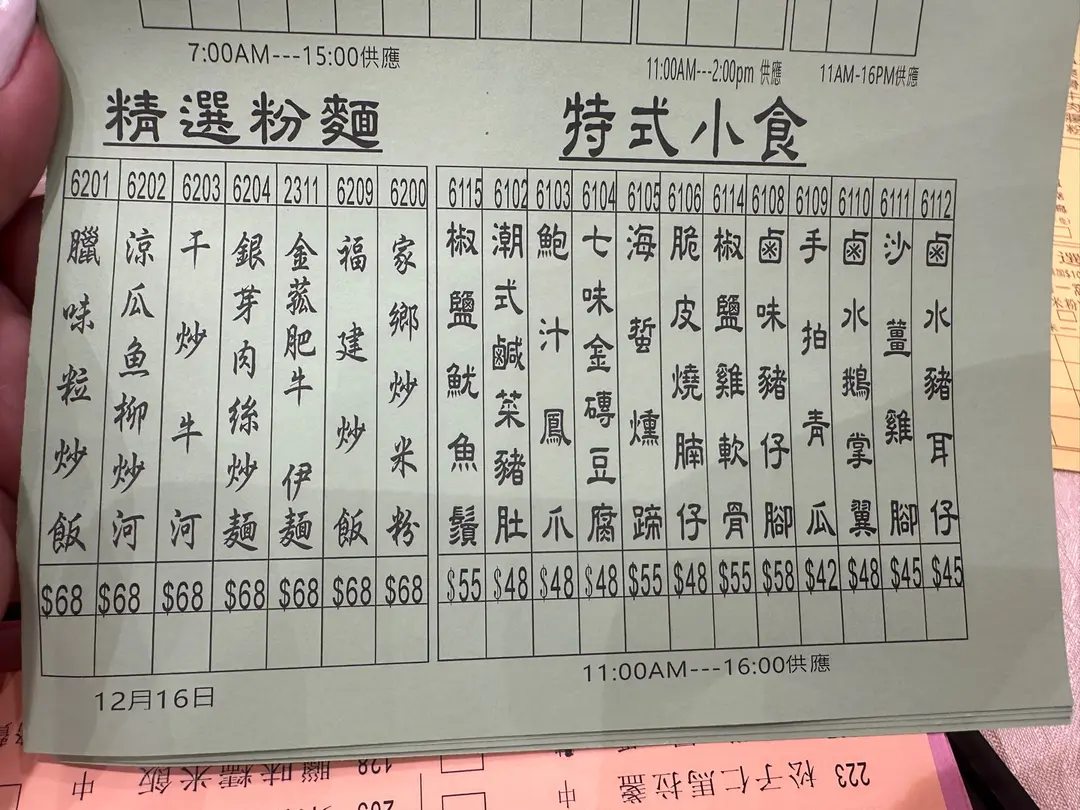 7:00AM---15:00供應
11:00AM---2:00pm 供應
11AM-16PM供應
精選粉麵
6201 臘味粒炒飯 $68
6202 涼瓜魚柳炒河 $68
6203 干炒牛河 $68
6204 銀芽肉絲炒麵 $68
2311 金菰肥牛伊麵 $68
6209 福建炒飯 $68
6200 家鄉炒米粉 $68
12月16日
特式小食
6115 椒鹽魷魚鬚 $55
6102 潮式鹹菜豬肚 $48
6103 鮑汁鳳爪 $48
6104 七味金磚豆腐 $48
6105 海蜇燻蹄 $55
6106 脆皮燒腩仔 $48
6114 椒鹽雞軟骨 $55
6108 鹵味豬仔腳 $58
6109 手拍青瓜 $42
6110 鹵水鵝掌翼 $48
6111 沙薑雞腳 $45
6112 鹵水豬耳仔 $45
11:00AM---16:00供應
223 松子仁馬拉盞
中
128 臘味糯米飯
中